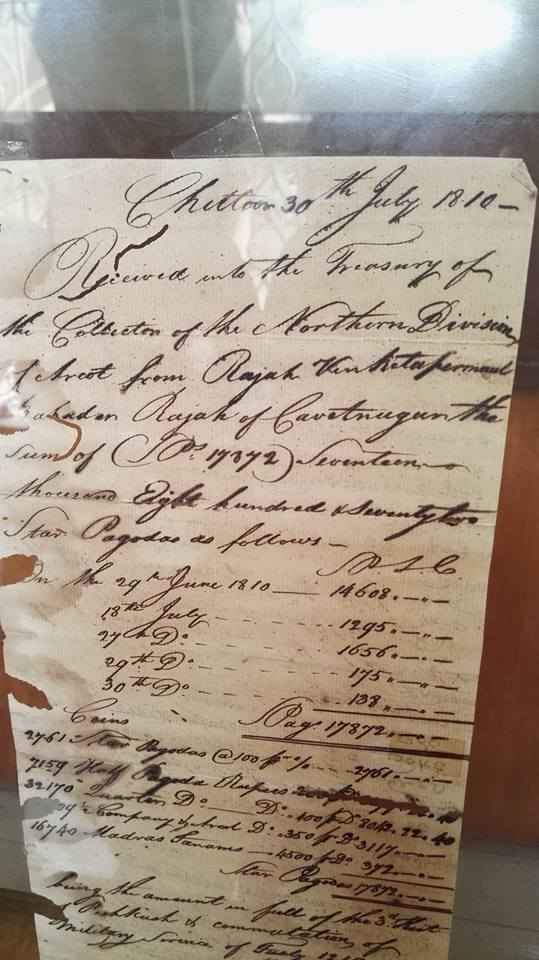 Chittoor 30th July 1810 —
Received into the Treasury of
the Collector of the Northern Division
of Arcot from Rajah Venketapermaul
Bahader Rajah of Cavetnugur the
Sum of (SPs. 17872) Seventeen
thousand Eight hundred & Seventy two
Star Pagodas as follows —
P. F. C.
On the 29th June 1810 — 14608 " — " —
18th July — 1295 " — " —
27th Do. — 1656 " — " —
29th Do. — 175 " — " —
30th Do. — 138 " — " —
Pags. 17872 " — " —
Coins
2761 Star Pagodas @ 100 pr % — 2761 " — " —
7159 Half Pagoda Rupees
32170 Quarter Do. Do. 400 pr Do. 8042 " 22 " 40
Company & Arcot Do. 350 pr Do. 3117 " — " —
16740 Madras Fanams — 4500 pr Do. 372 " — " —
Star Pagodas 17872 " — " —
being the amount in full of the 3rd Kist
of Peshkush & commutation of
Military Service of Fusly